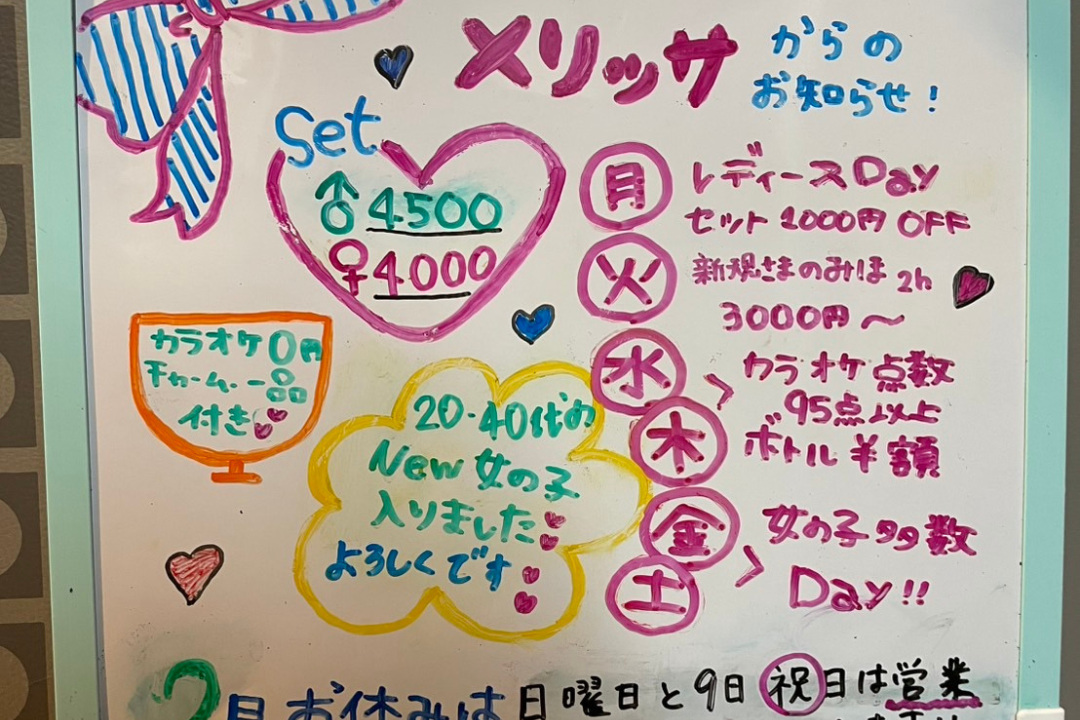 メリッサ
からの
お知らせ!
Set
♂4500
♀4000
カラオケ0円
チャーム一品
付き
20-40代の
New女の子
入りました
よろしくです
月 レディースDay
セット1000円OFF
火 新規さまのみほ2h
3000円〜
水 木 > カラオケ点数
95点以上
ボトル半額
金 土 > 女の子多数
Day!!
2月お休みは日曜日と9日祝日は営業